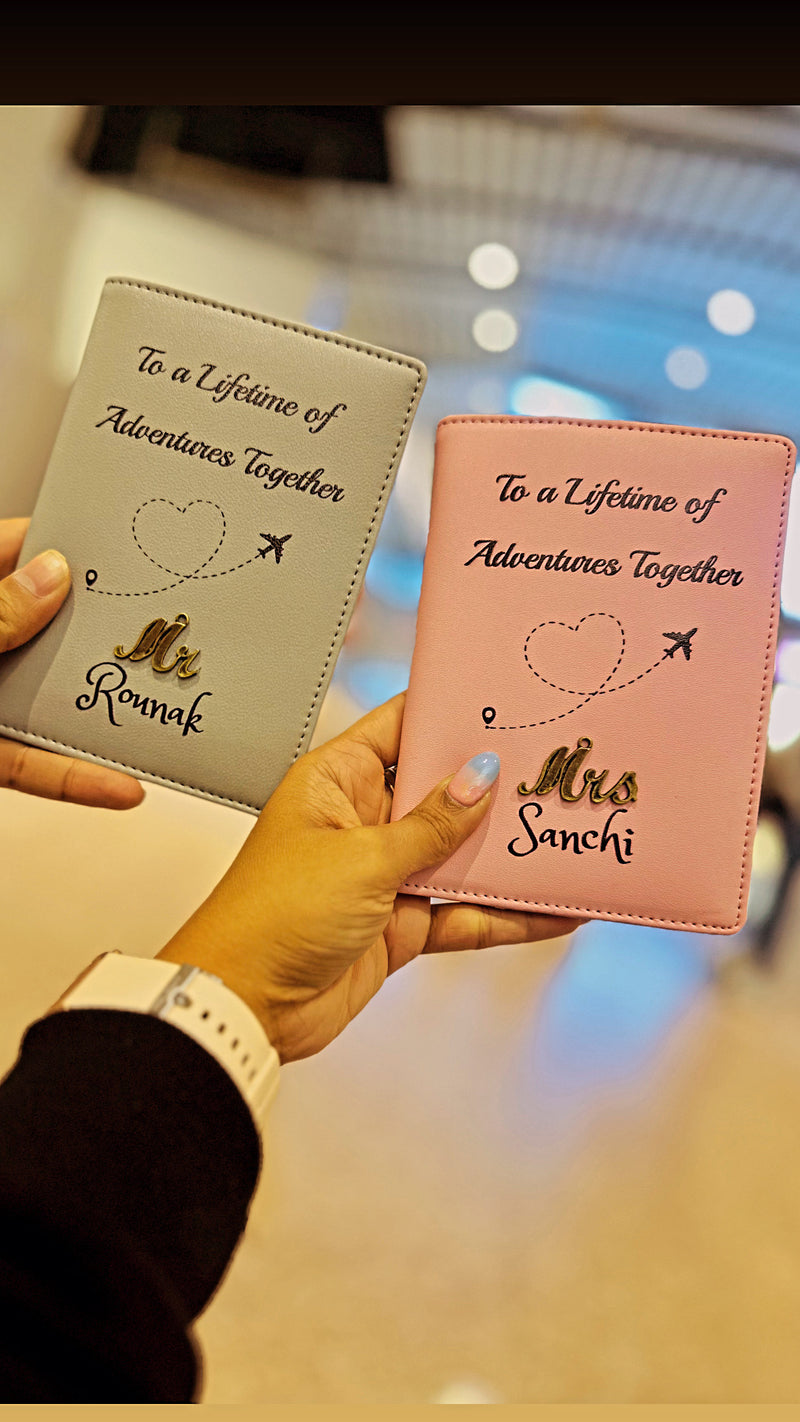 To a Lifetime of
Adventures Together
Mr
Rounak
To a Lifetime of
Adventures Together
Mrs
Sanchi